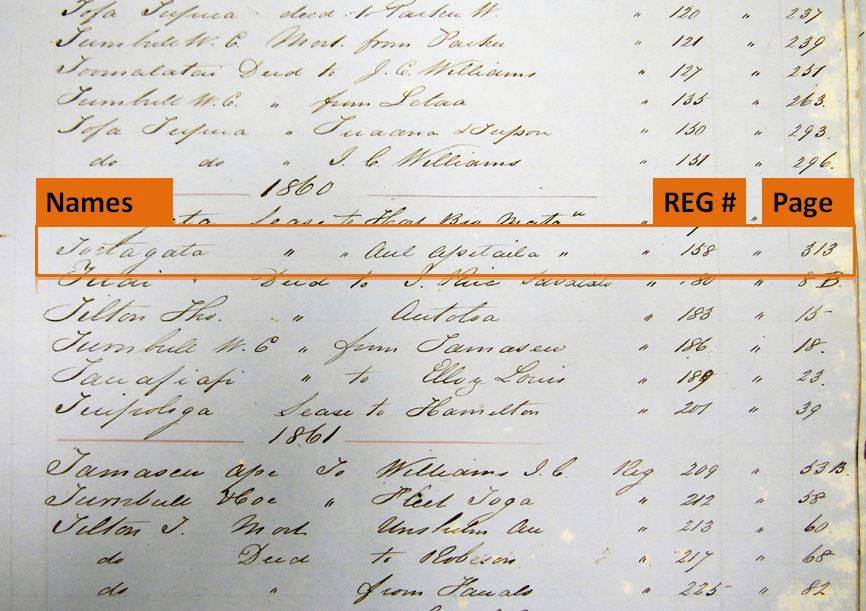 Tofa Tupua deed to Parker W. " 120 " 237
Turnbull W. C. Mort. from Parker " 121 " 239
Toomalatai Deed to J. C. Williams " 127 " 251
Turnbull W. C. " from Letaa " 135 " 263.
Tofa Tupua " Tuaana & Tupson " 150 " 293.
do do " J. C. Williams " 151 " 296.
1860
Names REG # Page
Lease to
Toetagata " " Aul Apetaila " " 158 " 313
Tuai Deed to J. " 180 " 8 B.
Tilton Tho. " Autoloa " 183 " 15
Turnbull W. C " from Tamaseu " 186 " 18.
Tauapiapi " to Elloy Louis " 189 " 23.
Tuipologa Lease to Hamilton " 201 " 39
1861
Tamaseu ape To Williams J. C. Reg 209 " 53 B.
Turnbull & Coe " Fleet Toga " 212 " 58
Tilton T. Mort Unshelm Au " 213 " 60.
do Deed to Robeson " 217 " 68
do " from Fauals " 225 " 82